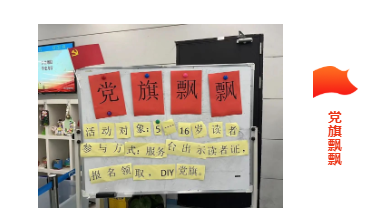 党旗飘飘
活动对象：5 16岁读者
参与方式：服务台出示读者证，
报名领取。DIY党旗。
党
旗
飘
飘